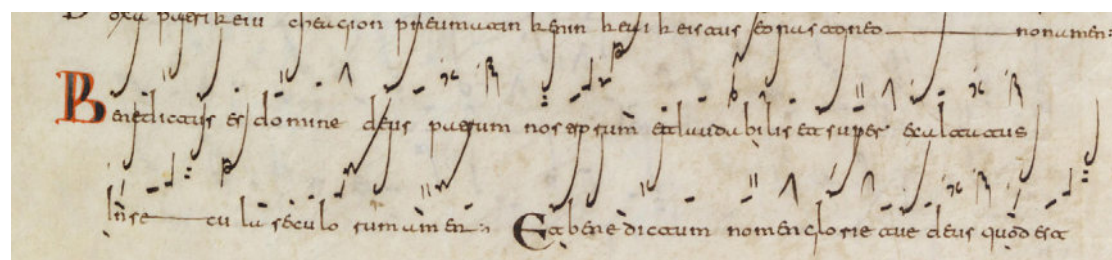 oxa patri keiu cheagion pneumatin kenin keai keistaus eonastoneo nonamen:
Benedictus es domine deus patrum nostrum et laudabilis et super exaltatus
Inse cu la seculo rumamen: Et benedictum nomen glorie tue deus quod est